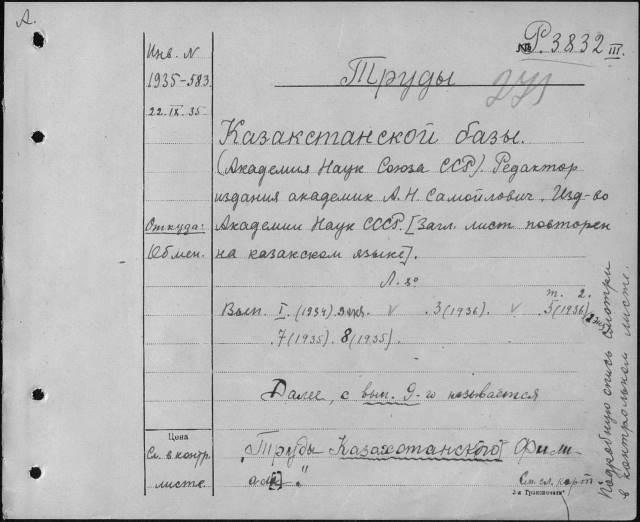 А.
№ Р. 3832 III.
Инв. N
1935-583
22.IX.35
Труды
Казакстанской базы.
(Академия Наук Союза ССР). Редактор
издания академик А.Н. Самойлович. Изд-во
Откуда:
Академии Наук СССР. [Загл. лист повторен
Обмен.
на казакском языке].
Л. 8°
т. 2.
Вып. I. (1934). v .3 (1936). v .5 (1936)
.7 (1935). 8 (1935).
Далее, с вып. 9-го называется
Цена
См. в контр.
листе
„Труды Казахстанского Фили-
ала."
См. сл. карт.
Подробную опись смотри
в контрольном листе.